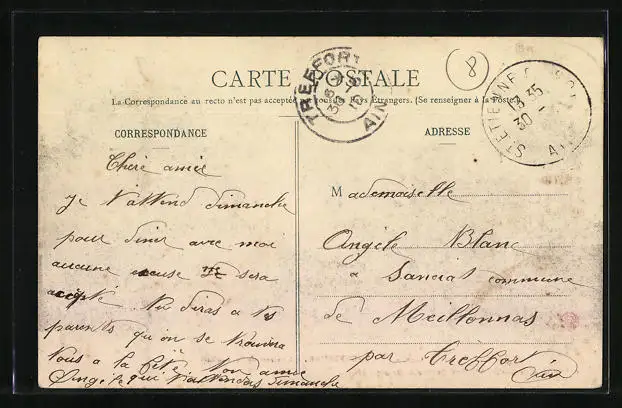 CARTE POSTALE
La Correspondance au recto n'est pas acceptée par tous pays Étrangers. (Se renseigner à la Poste.)
8
TREFFORT
AIN
ST ETIENNE
13 35
30
CORRESPONDANCE
Chère amie
je t'attend dimanche
pour diner avec moi
aucune excuse ne sera
accepté tu diras a tes
parents qu'on se trouvera
tous a la fête ton amie
Angèle qui t'attendais dimanche
ADRESSE
Mademoiselle
Angèle Blanc
a Sanciat commune
de Meillonnas
par Trèffort Ain